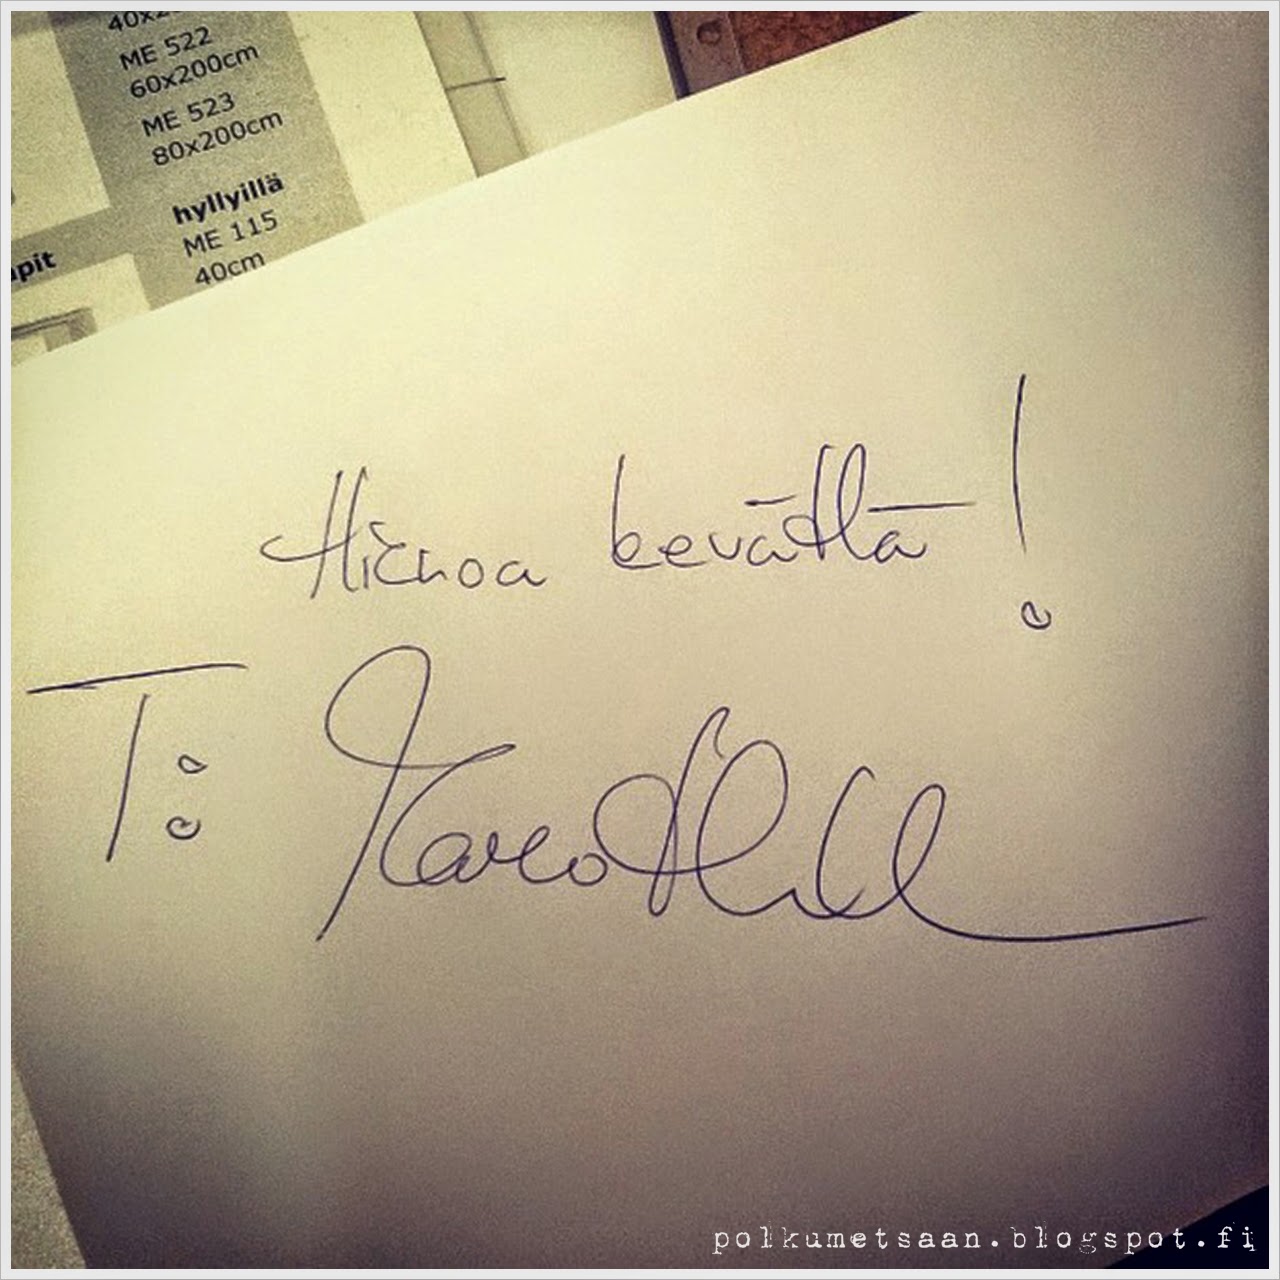 ME 522
60x200cm
ME 523
80x200cm
hyllyillä
ME 115
40cm
Hienoa kevättä!
T:
polkumetsaan.blogspot.fi